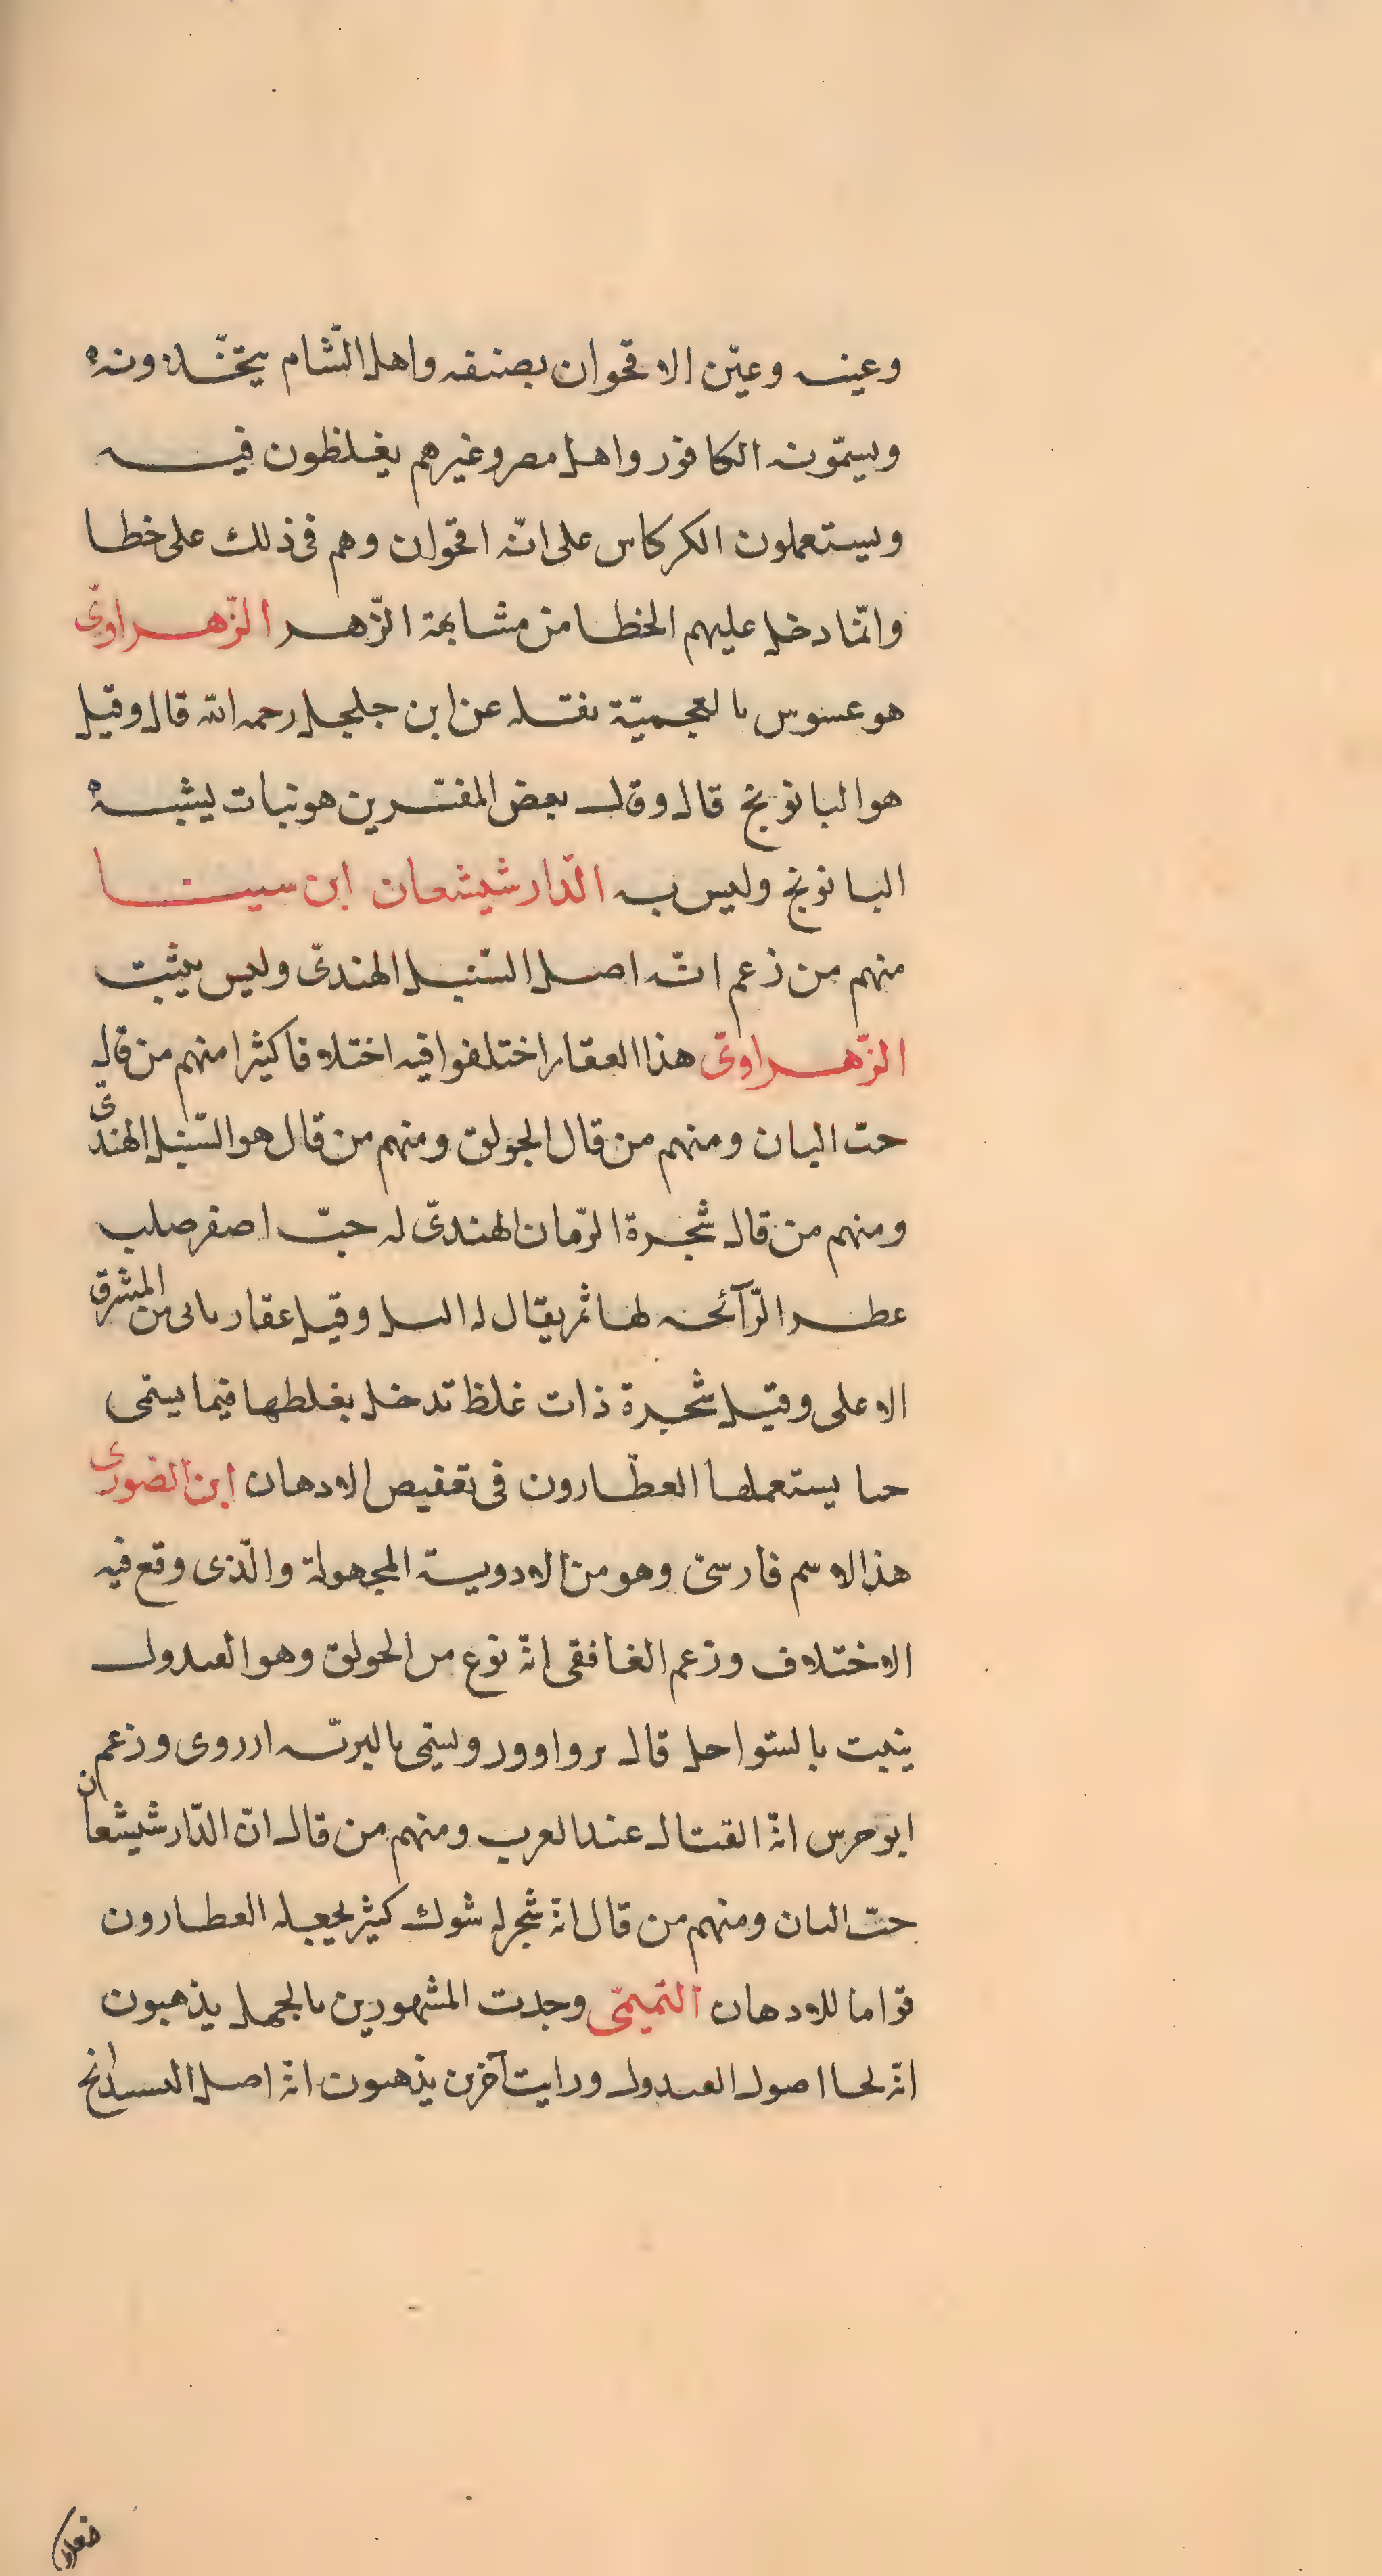 وعينه وعيّن الاقحوان بصنفه واهل الشّام يتخّذونه
ويسمّونه الكافور واهل مصر وغيرهم يغلظون فيه
ويستعملون الكركاس على انّه اقحوان وهم فى ذلك على خطا
وانّما دخل عليهم الخطا من مشابهة الزّهر الزّهراوىّ
هو عسوس بالعجميّة نقله عن ابن جلجل رحمه الله قال وقيل
هو البابونج قال وقال بعض المفسّرين هو نبات يشبه
البابونج وليس به الدّارشيشعان ابن سينا
منهم من زعم انّه اصل السّنبل الهندىّ وليس يثبت
الزّهراوىّ هذا العقار اختلفوا فيه اختلافا كثيرا منهم من قال
حبّ البان ومنهم من قال الجولق ومنهم من قال هو السّنبل الهندىّ
ومنهم من قال شجرة الرّمان الهندىّ له حبّ اصفر صلب
عطر الرّآئحه لها ثمر يقال له وقيل عقار من المشرق
الاعلى وقيل شجرة ذات غلظ تدخل بغلظها فيما يسمّى
حبا يستعملها العطّارون فى تعفيص الادهان ابن الصورى
هذا الاسم فارسىّ وهو من الادوية المجهولة والّذى وقع فيه
الاختلاف وزعم الغافقى انّه نوع من الحولق وهو العبدول
ينبت بالسّواحل قال ويسمّى ارروى وزعم
ابو حرس انّه القتال عند العرب ومنهم من قال انّ الدّارشيشعان
حبّ البان ومنهم من قال انّه شجر له شوك كثير يجعله العطارون
قواما للادهان التّميمىّ وجدت المشهورين بالجهل يذهبون
انّه لحا اصول العبدول ورايت آخرين يذهبون انّه اصل